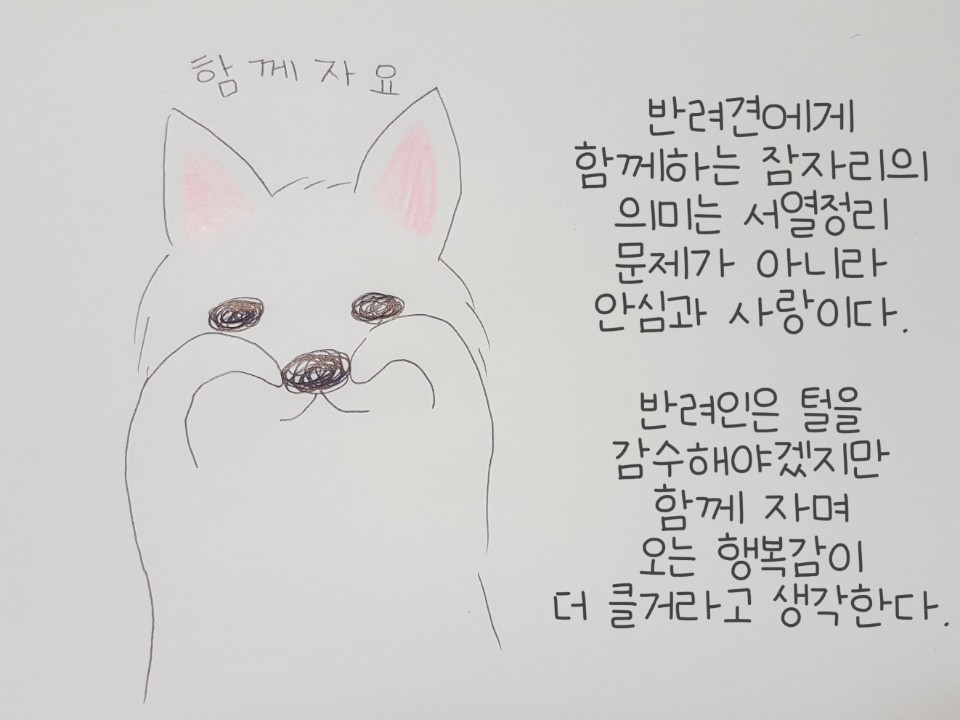 함께자요
반려견에게
함께하는 잠자리의
의미는 서열정리
문제가 아니라
안심과 사랑이다.
반려인은 털을
감수해야겠지만
함께 자며
오는 행복감이
더 클거라고 생각한다.